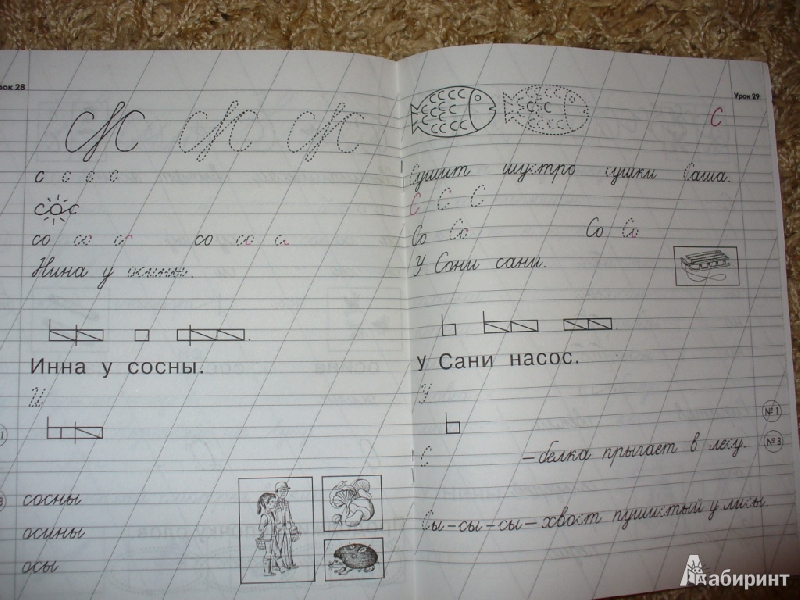 рок 28
с с с с
сас
со со со со со с
Нина у осины.
Инна у сосны.
И
сосны
осины
осы
Урок 29
С
Сушит шустро сушки Саша.
С С С
Со Со Со Со
У Сони сани.
У Сани насос.
У
№ 1
С – белка прыгает в лесу.
№ 3
Сы – сы – сы – хвост пушистый у лисы.
Лабиринт